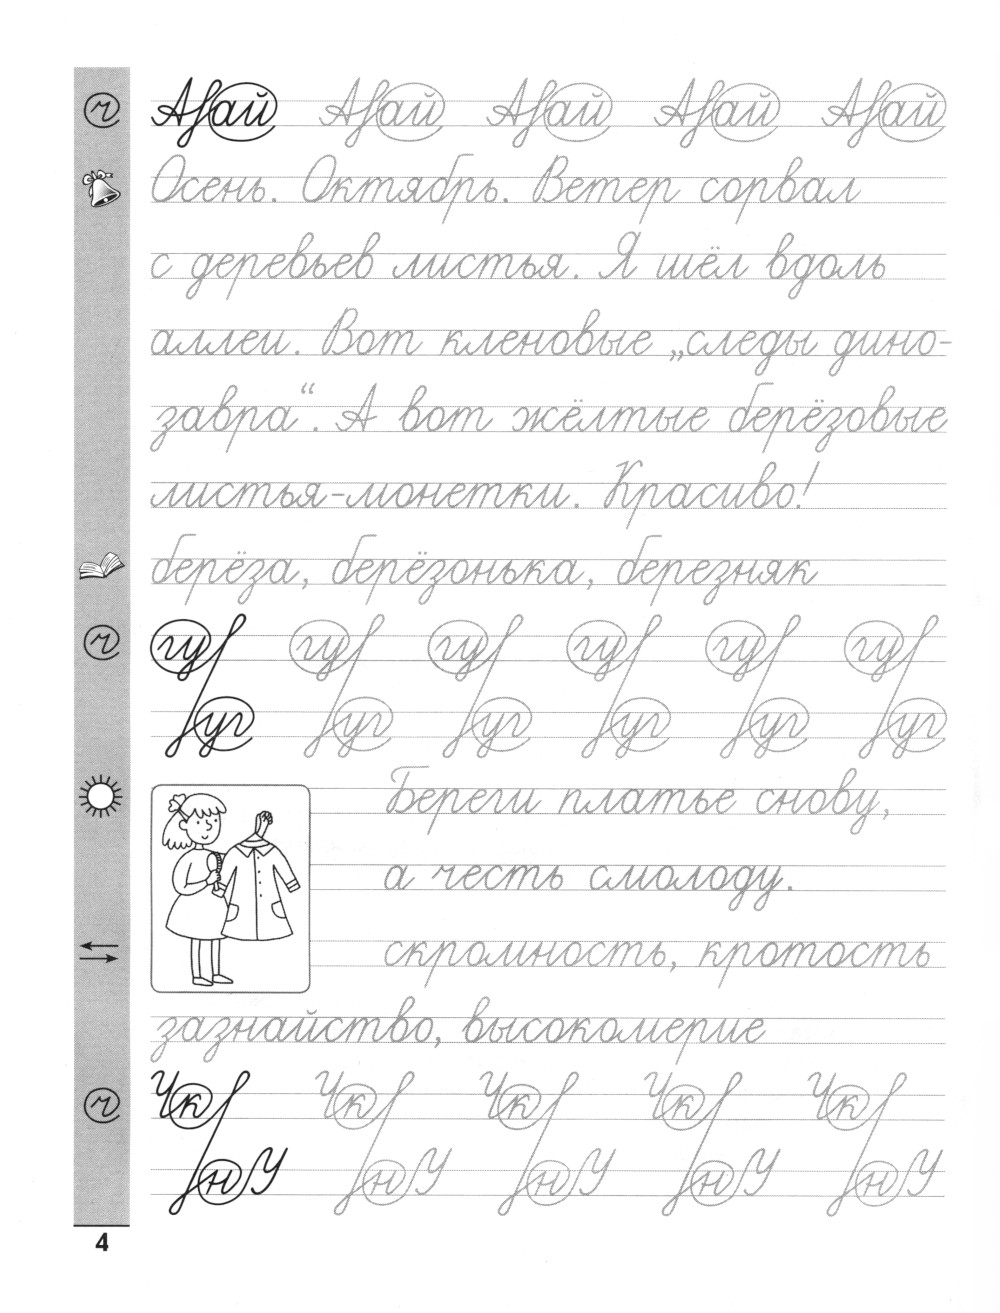 Ай Ай Ай Ай Ай
Осень. Октябрь. Ветер сорвал
с деревьев листья. Я шёл вдоль
аллеи. Вот кленовые „следы дино-
завра“. А вот жёлтые берёзовые
листья-монетки. Красиво!
берёза, берёзонька, березняк
гу гу гу гу гу гу
уг уг уг уг уг уг
Береги платье снову,
а честь смолоду.
скромность, кротость
зазнайство, высокомерие
Чк Чк Чк Чк Чк
нУ нУ нУ нУ нУ
4